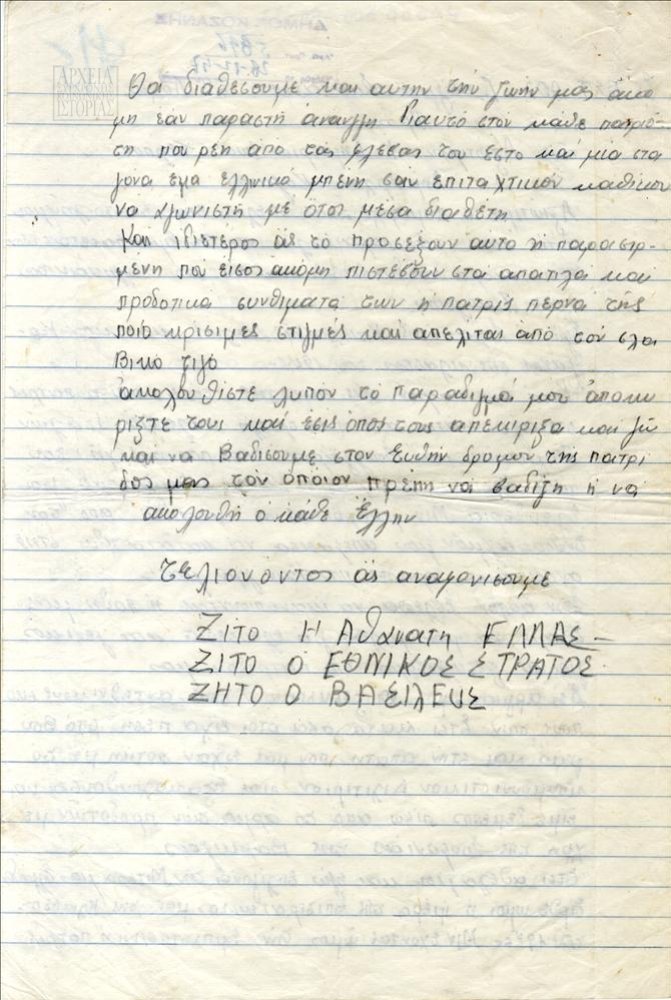 ΑΡΧΕΙΑ
ΣΥΓΧΡΟΝΗΣ
ΙΣΤΟΡΙΑΣ
ΔΗΜΟΣ ΚΟΖΑΝΗΣ
Θα διαθέσουμε και αυτην την ζωήν μας άκο
μη έαν παραστή άναγγη Γιαυτό στόν κάθε πατριό-
τη που ρέη άπο τάς φλέβας του έστο και μία στα
γόνα έμα ελληνικό μπένη σάν επιταχτικόν καθίκον
να αγωνιστή με ότσι μέσα διαθέτη
Και ιδιετέρος άς τό προσέξουν αυτο ή παρασιρ-
μένη που είσος ακόμη πιστέβουν στα απατιλά και
προδοτικα συνθίματα των η πατρίς περνά τής
ποιο κρίσιμες στιγμές και απελίται από τον σλα
βικό ζιγό
ακολουθίστε λυπόν το παράδιγμά μου άποκυ
ρίξτε τους και έσις όπος τους απεκιριξα και γώ
και να βαδίσουμε στον ευθήν δρόμον της πατρί
δος μας τόν όποιον πρέπη νά βαδίζη ή νά
ακολουθή ο κάθε Έλλην
Τελιονόντος άς αναφονίσουμε
ΖΙΤΟ Η Αθανατη ΕΛΛΑΣ –
ΖΙΤΟ Ο ΕΘΝΙΚΟΣ ΣΤΡΑΤΟΣ
ΖΗΤΟ Ο ΒΑΣΙλΕΥΣ